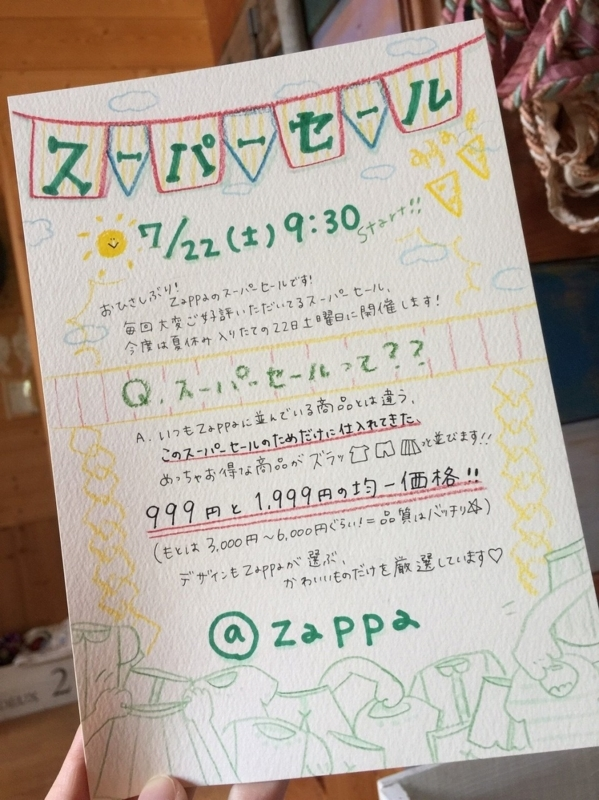 スーパーセール
7/22(土) 9:30 Start!!
おひさしぶり!
Zappaのスーパーセールです!
毎回大変ご好評いただいてるスーパーセール、
今度は夏休み入りたての22日土曜日に開催します!
Q. スーパーセールって??
A. いつもZappaに並んでいる商品とは違う、
このスーパーセールのためだけに仕入れてきた、
めっちゃお得な商品がズラッ と並びます!!
999円と1,999円の均一価格!!
(もとは3,000円〜6,000円ぐらい!=品質はバッチリ)
デザインもZappaが選ぶ、
かわいいものだけを厳選しています♡
@ zappa
DEUX 2